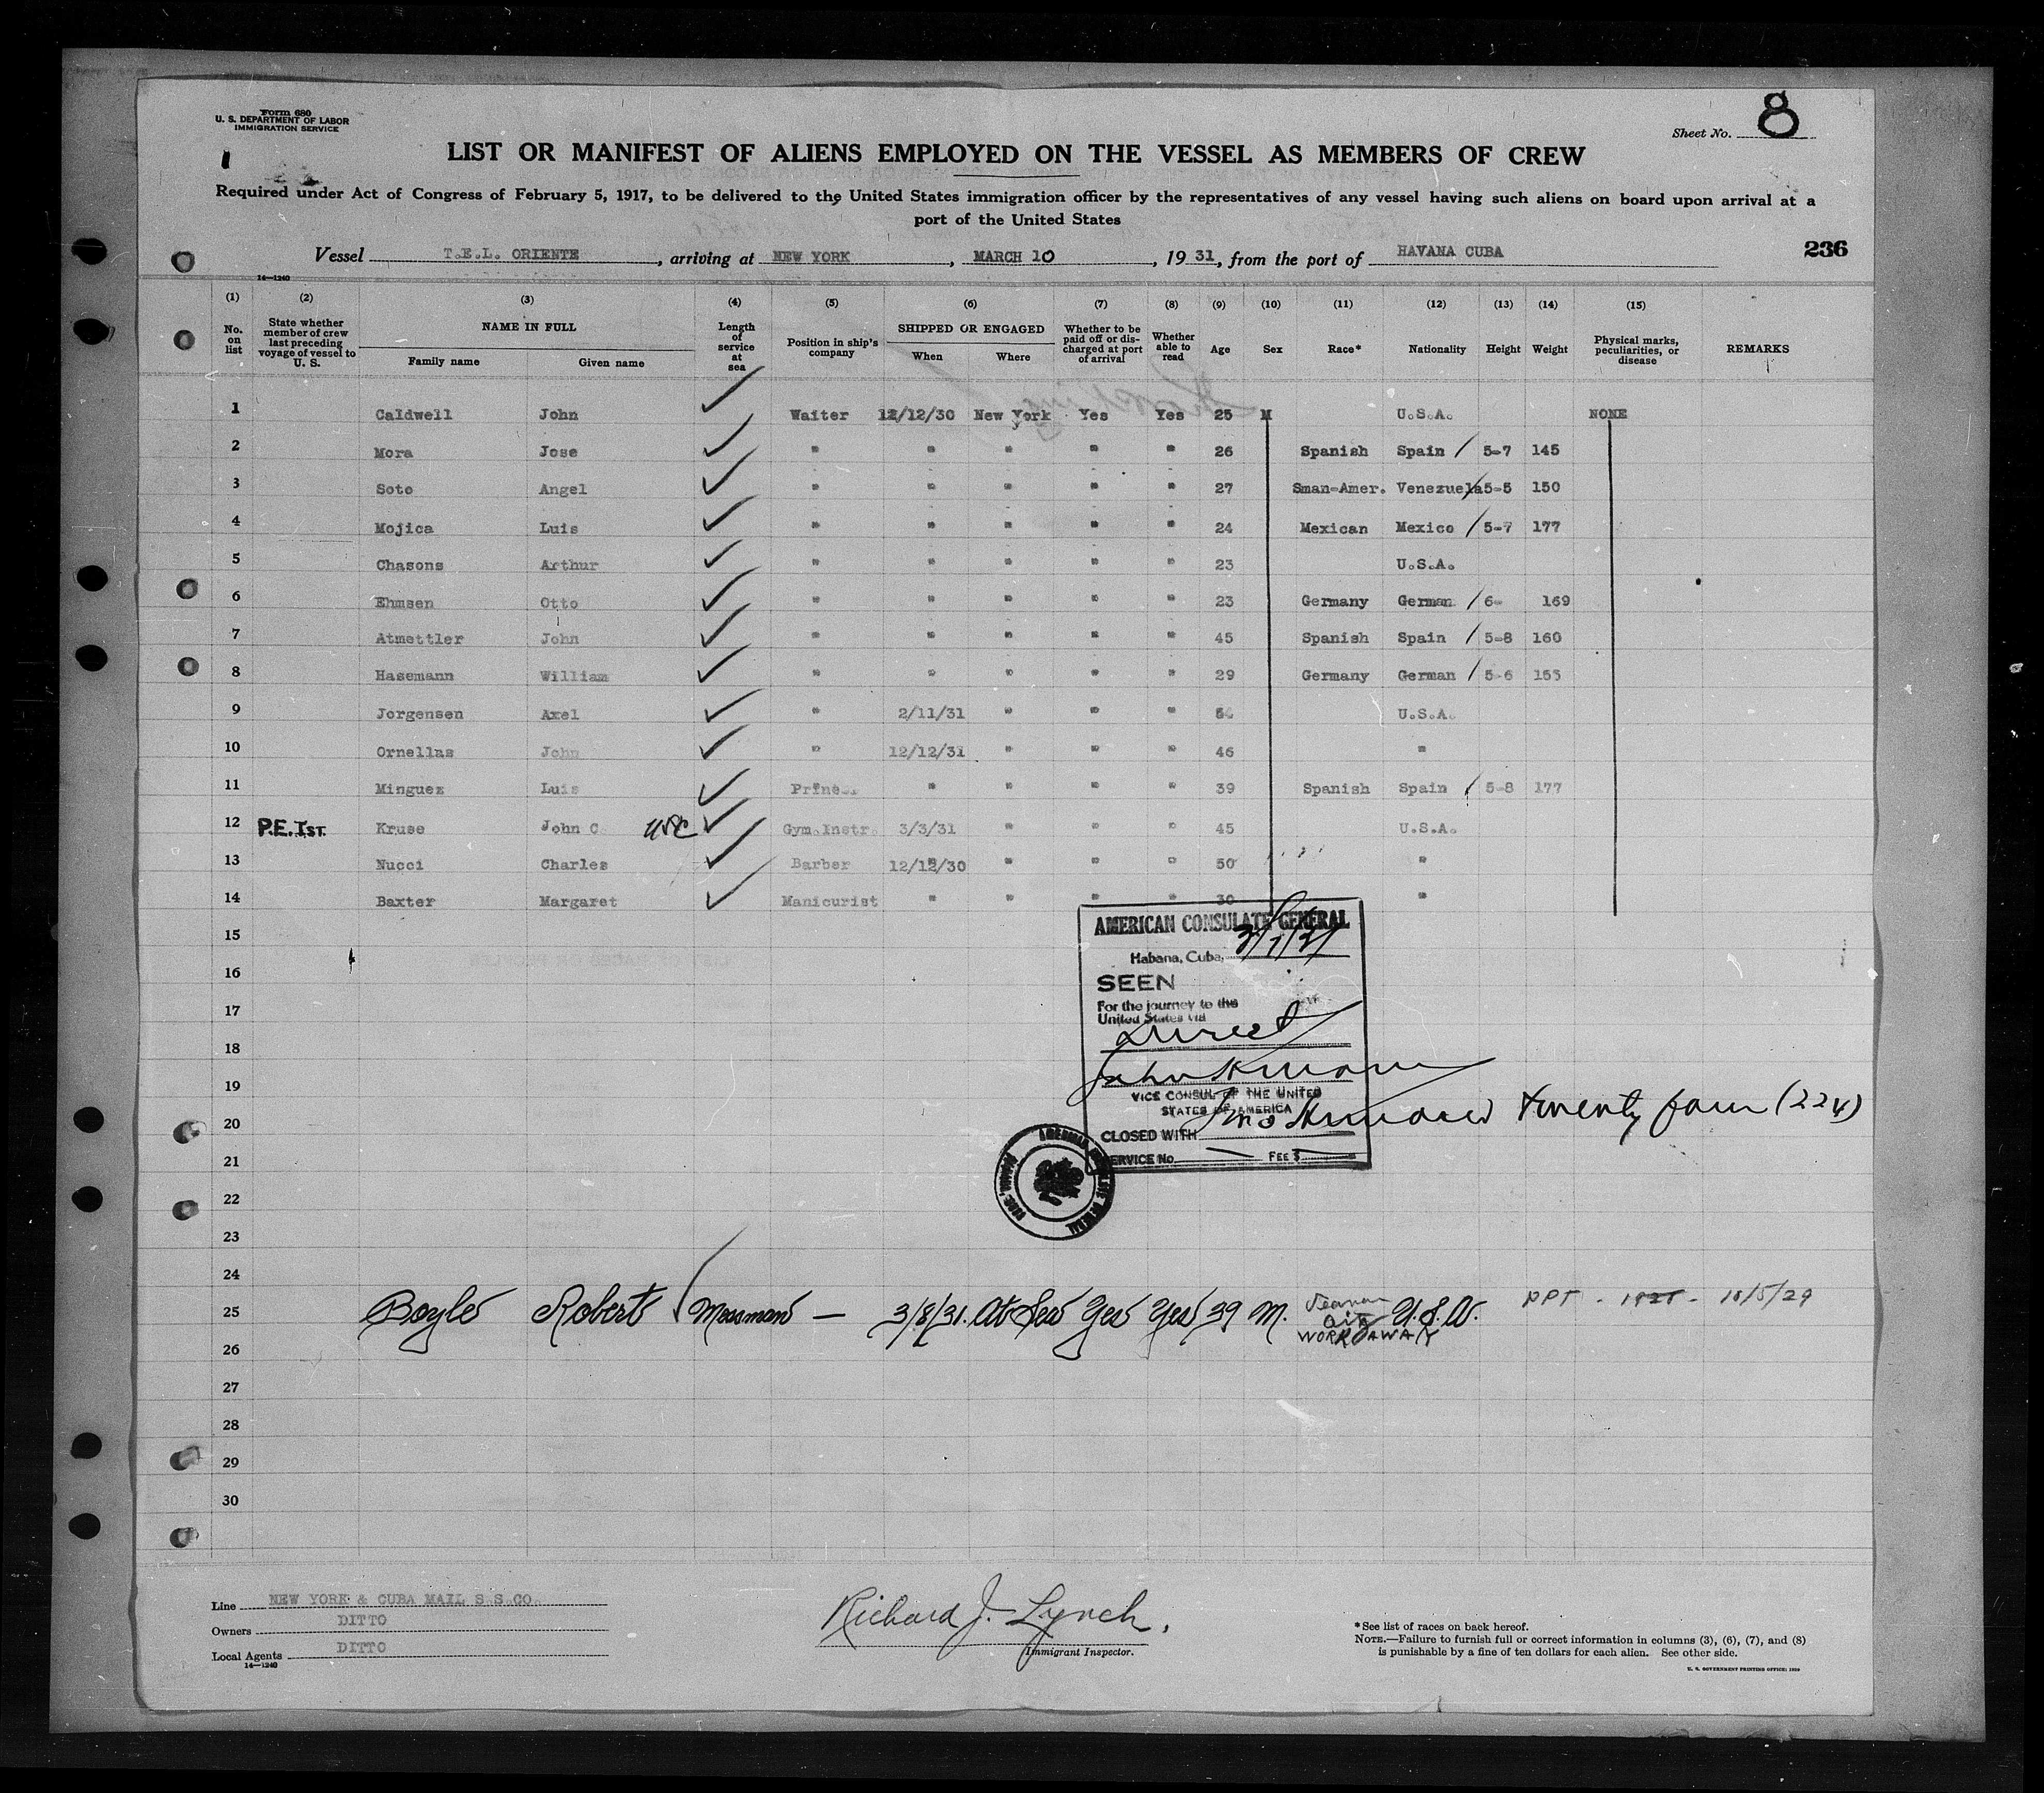 Form 680
U. S. DEPARTMENT OF LABOR
IMMIGRATION SERVICE
Sheet No. 8
LIST OR MANIFEST OF ALIENS EMPLOYED ON THE VESSEL AS MEMBERS OF CREW
Required under Act of Congress of February 5, 1917, to be delivered to the United States immigration officer by the representatives of any vessel having such aliens on board upon arrival at a
port of the United States
Vessel T.E.L. ORIENTE, arriving at NEW YORK, MARCH 10, 1931, from the port of HAVANA CUBA 236
14—1240
(1) (2) (3) (4) (5) (6) (7) (8) (9) (10) (11) (12) (13) (14) (15)
No. on list
State whether member of crew last preceding voyage of vessel to U. S.
NAME IN FULL
Family name Given name
Length of service at sea
Position in ship's company
SHIPPED OR ENGAGED
When Where
Whether to be paid off or discharged at port of arrival
Whether able to read
Age Sex Race* Nationality Height Weight
Physical marks, peculiarities, or disease
REMARKS
1 Caldwell John ✓ Waiter 12/12/30 New York Yes Yes 25 M U.S.A. NONE
2 Mora Jose ✓ " " " " " 26 Spanish Spain / 5-7 145
3 Soto Angel ✓ " " " " " 27 Sman-Amer. Venezuela 5-5 150
4 Mojica Luis ✓ " " " " " 24 Mexican Mexico / 5-7 177
5 Chasons Arthur ✓ " " " " " 23 U.S.A.
6 Ehmsen Otto ✓ " " " " " 23 Germany German / 6- 169
7 Atmettler John ✓ " " " " " 45 Spanish Spain / 5-8 160
8 Hasemann William ✓ " " " " " 29 Germany German / 5-6 153
9 Jorgensen Axel ✓ " 2/11/31 " " " U.S.A.
10 Ornellas John ✓ " 12/12/31 " " " 46 "
11 Minguez Luis ✓ " " " " 39 Spanish Spain / 5-8 177
12 P.E. IST. Kruse John C. USC ✓ Gym.Instr. 3/3/31 " " " 45 U.S.A.
13 Nucci Charles ✓ Barber 12/12/30 " " " 50 "
14 Baxter Margaret ✓ Manicurist " " " " 30 "
15
16
17
18
19
20
21
22
23
24
25 Boyle Robert ✓ Messman — 3/8/31. At Sea Yes Yes 39 M. WORKAWAY U.S.A. PPT - 10/5/29
26
27
28
29
30
AMERICAN CONSULATE GENERAL
Habana, Cuba, 3/7/31
SEEN
For the journey to the
United States via
direct
VICE CONSUL OF THE UNITED
STATES OF AMERICA
CLOSED WITH Two Hundred twenty four (224)
SERVICE No. — FEE $ —
Line NEW YORK & CUBA MAIL S.S.CO.
Owners DITTO
Local Agents DITTO
14—1240
Richard J. Lynch.
Immigrant Inspector.
* See list of races on back hereof.
NOTE.—Failure to furnish full or correct information in columns (3), (6), (7), and (8)
is punishable by a fine of ten dollars for each alien. See other side.
U. S. GOVERNMENT PRINTING OFFICE: 1930